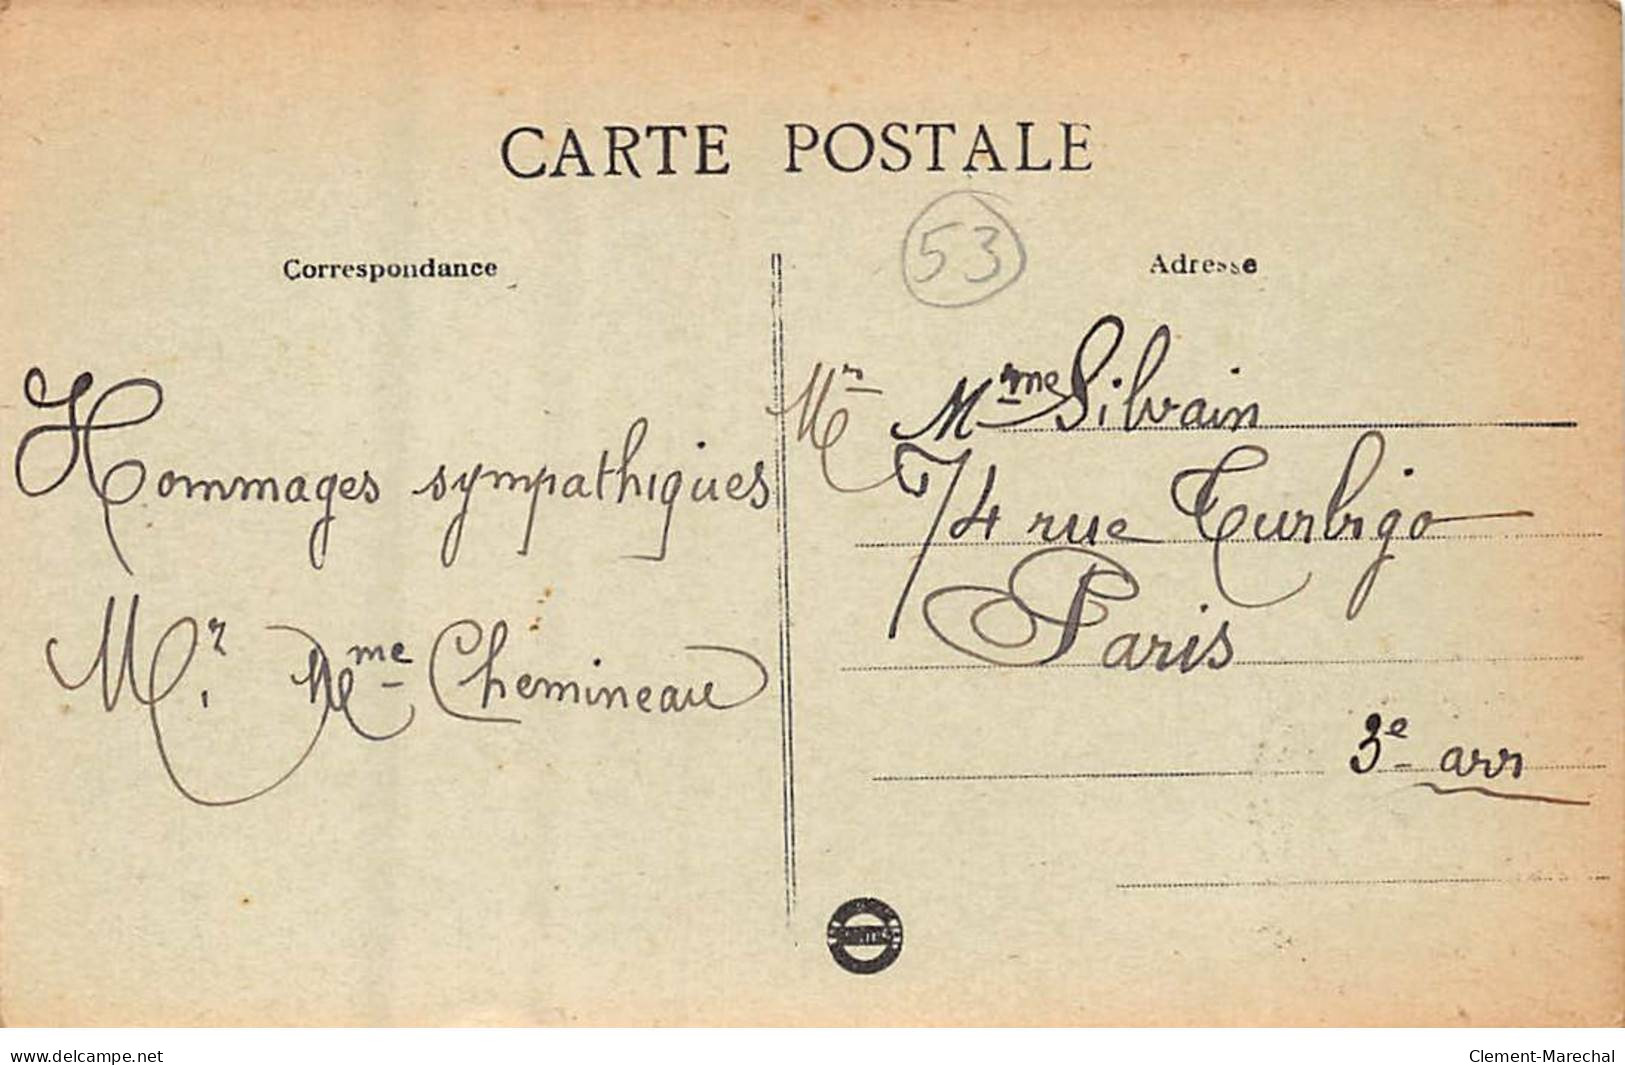 CARTE POSTALE
53
Correspondance
Adresse
Hommages sympathiques
Mr. Mme Chemineau
Mr Mme Silvain
74 rue Turbigo
Paris
3e arr
delcampe.net
Clement-Marechal